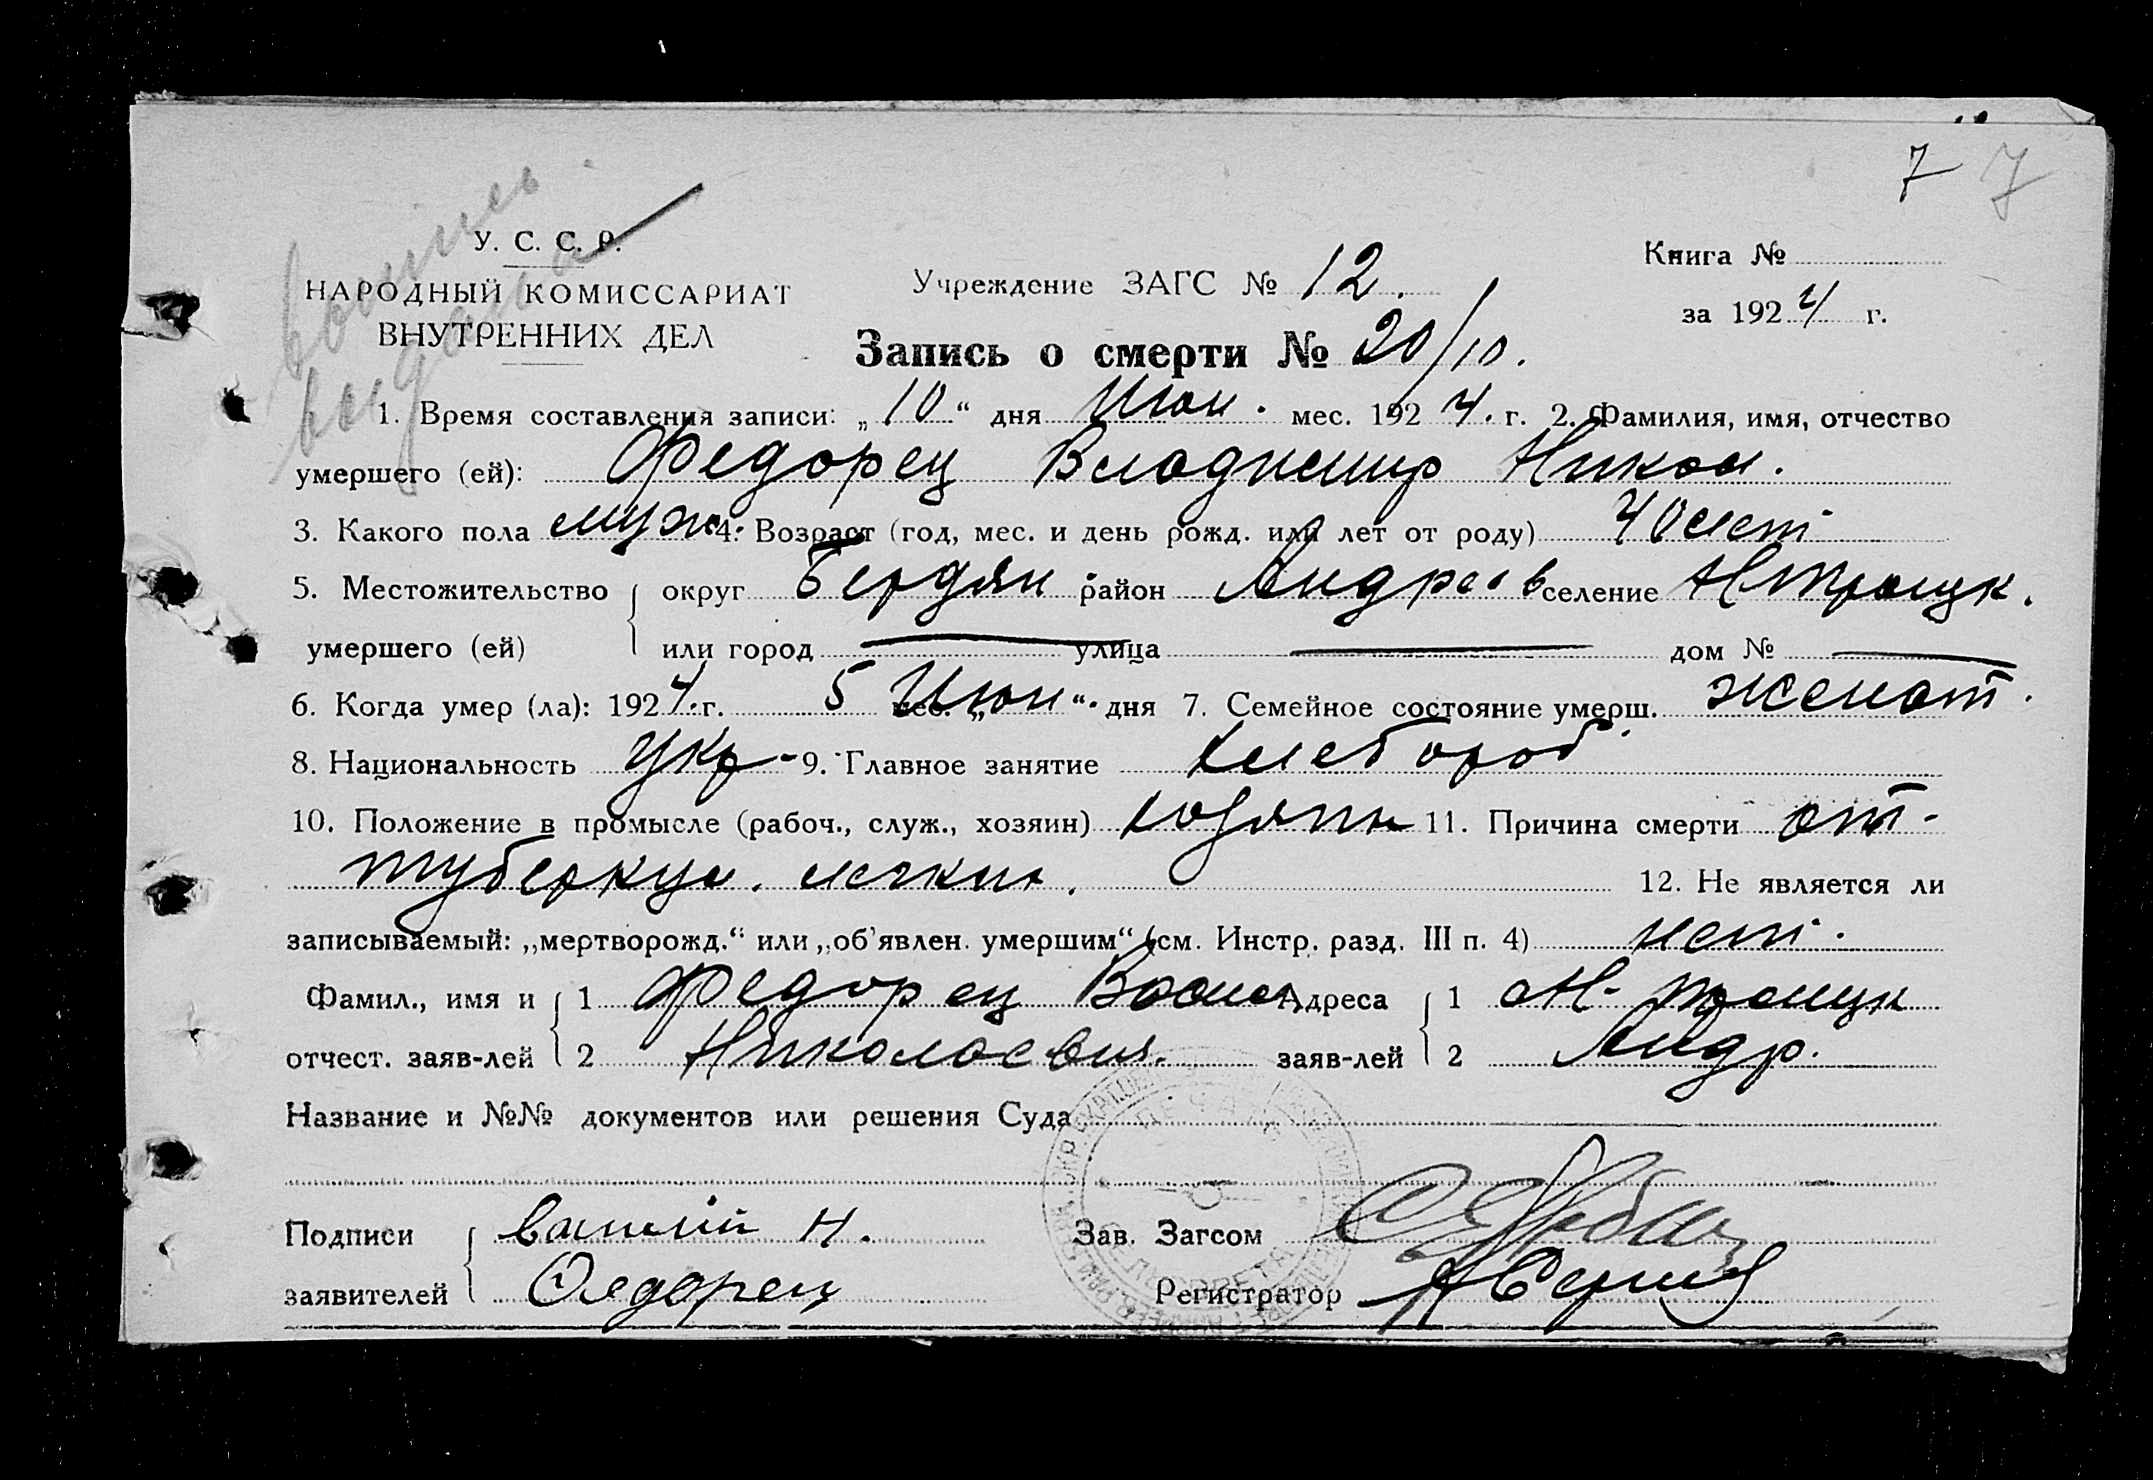 7 7
выпись
У. С. С. Р.
выдана
НАРОДНЫЙ КОМИССАРИАТ
ВНУТРЕННИХ ДЕЛ
Учреждение ЗАГС № 12.
Книга №
за 1924 г.
Запись о смерти № 20/10.
1. Время составления записи: „10“ дня Июн. мес. 1924. г. 2. Фамилия, имя, отчество
умершего (ей): Федорец Владимир Никол.
3. Какого пола муж. 4. Возраст (год, мес. и день рожд. или лет от роду) 40 лет
5. Местожительство округ Бердян район Андреев селение Н Троицк.
умершего (ей) или город — улица — дом № —
6. Когда умер (ла): 1924. г. 5 мес. „Июн“. дня 7. Семейное состояние умерш. женат.
8. Национальность укр- 9. Главное занятие хлебороб
10. Положение в промысле (рабоч., служ., хозяин) хозяин 11. Причина смерти от-
туберкул. легких. 12. Не является ли
записываемый: „мертворожд.“ или „об'явлен. умершим“ (см. Инстр. разд. III п. 4) нет.
Фамил., имя и 1 Федорец Васил Адреса 1 Н- Троицк
отчест. заяв-лей 2 Николаевич. заяв-лей 2 Андр.
Название и №№ документов или решения Суда
ПЕЧАТЬ
Подписи василий Н. Зав. Загсом
заявителей Федорец Регистратор